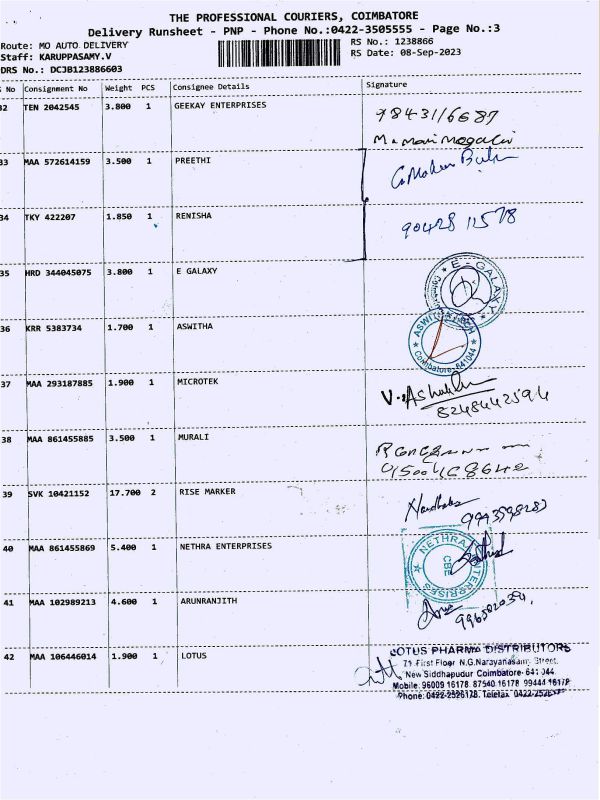 THE PROFESSIONAL COURIERS, COIMBATORE
Delivery Runsheet - PNP - Phone No.:0422-3505555 - Page No.:3
Route: MO AUTO DELIVERY RS No.: 1238866
Staff: KARUPPASAMY.V RS Date: 08-Sep-2023
DRS No.: DCJB123886603
No Consignment No Weight PCS Consignee Details Signature
32 TEN 2042545 3.800 1 GEEKAY ENTERPRISES
9843116687
33 MAA 572614159 3.500 1 PREETHI
34 TKY 422207 1.850 1 RENISHA
90428 11578
35 HRD 344045075 3.800 1 E GALAXY
E - GALAXY
36 KRR 5383734 1.700 1 ASWITHA
Coimbatore-641044
37 MAA 293187885 1.900 1 MICROTEK
8248442594
38 MAA 861455885 3.500 1 MURALI
39 SVK 10421152 17.700 2 RISE MARKER
40 MAA 861455869 5.400 1 NETHRA ENTERPRISES
NETHRA ENTERPRISES
CBE
41 MAA 102989213 4.600 1 ARUNRANJITH
42 MAA 106446014 1.900 1 LOTUS
LOTUS PHARMA DISTRIBUTORS
71 First Floor N.G.Narayanasamy Street,
New Siddhapudur Coimbatore- 641 044
Mobile: 96009 16178 87540 16178 99444 16178
Phone: 0422-2526178. Telefax